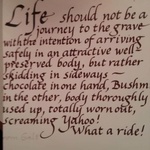 Life should not be a
journey to the grave
with the intention of arriving
safely in an attractive well
preserved body, but rather
skidding in sideways ~
chocolate in one hand, Bushm
in the other, body thoroughly
used up, totally worn out,
screaming Yahoo!
What a ride!